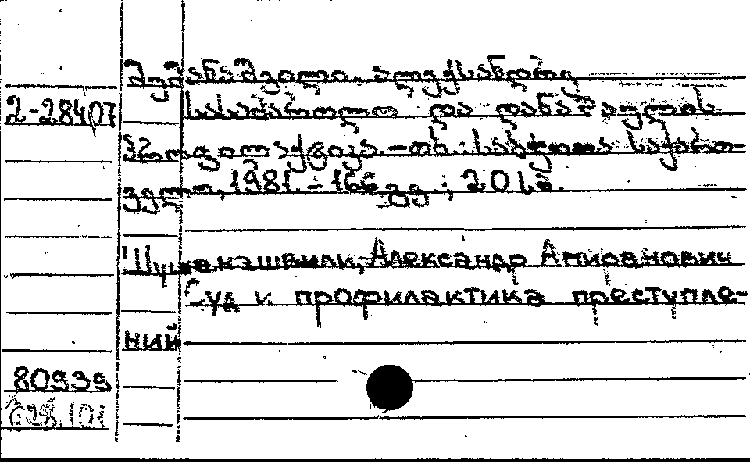 შუშანაშვილი, ალექსანდრე
2-28407 სასამართლო და დანაშაულის
პროფილაქტიკა. -თბ.: საბჭოთა საქართ-
ველო, 1981. - 166 გვ.; 20 სმ.
Шушанашвили, Александр Амиранович
Суд и профилактика преступле-
ний
80939
628.101